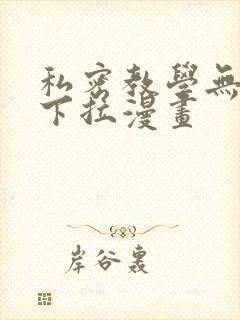 私密教學無
下拉漫畫
岸谷轟